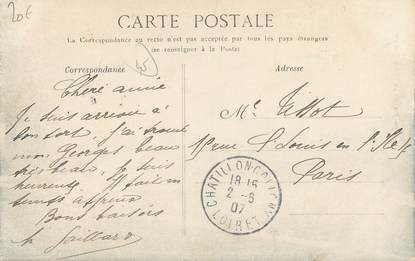 20€
CARTE POSTALE
La Correspondance au recto n'est pas acceptée par tous les pays étrangers
se renseigner à la Poste
45
Correspondance
Adresse
Chère amie
Je suis arrivée à
bon port, j'ai trouvé
mon Georges beau
très beau, je suis
heureuse. Il fait un
temps affreux
Bons baisers
Gaillard
Me Tissot
rue St Louis en l'Ile
Paris
CHATILLON-COLIGNY
18-15
2-9
07
LOIRET